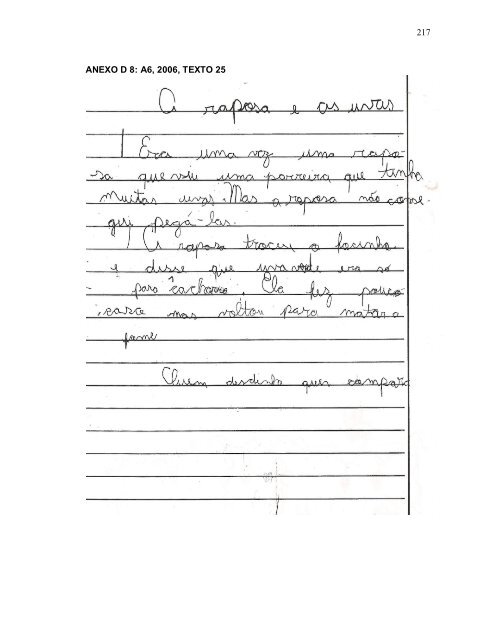 217
ANEXO D 8: A6, 2006, TEXTO 25
A raposa e as uvas
Era uma vez uma rapo-
sa que viu uma porreira que tinha
muitas uvas. Mas a raposa não conse-
guiu pegá-las.
A raposa troceu o focinho
e disse que uva verde era só
para cachorro. Ela fez pouco
caso mas voltou para matar a
fome
Quem desdenha quer comprar